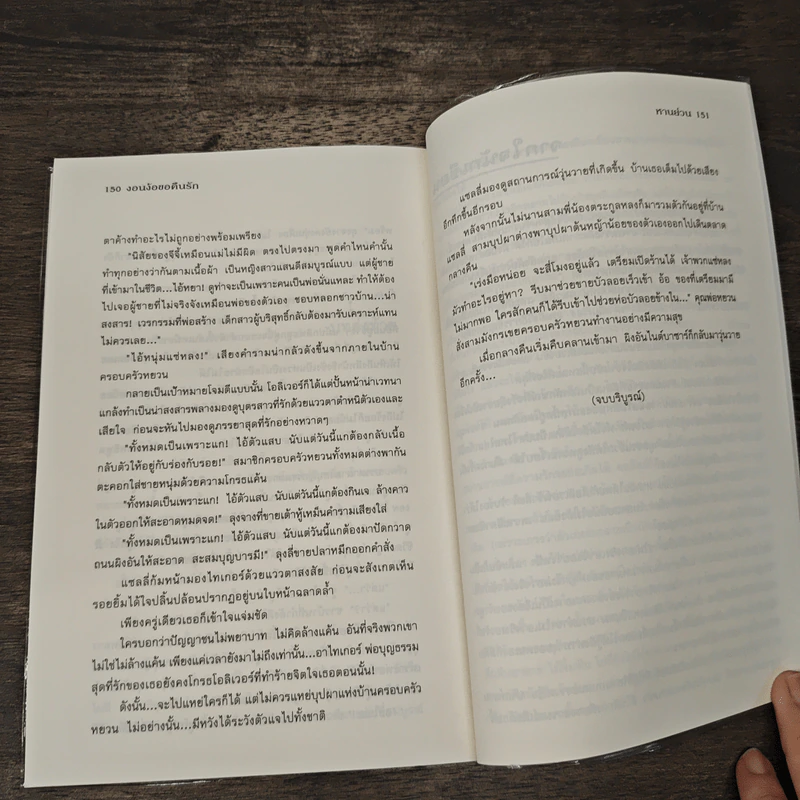 150 งอนง้อขอคืนรัก
ตาค้างทำอะไรไม่ถูกอย่างพร้อมเพรียง
"นิสัยของจีจี้เหมือนแม่ไม่มีผิด ตรงไปตรงมา พูดคำไหนคำนั้น
ทำทุกอย่างว่ากันตามเนื้อผ้า เป็นหญิงสาวแสนดีสมบูรณ์แบบ แต่ผู้ชาย
ที่เข้ามาในชีวิต...ไอ้หยา! ดูท่าจะเป็นเพราะคนเป็นพ่อนั่นแหละ ทำให้ต้อง
ไปเจอผู้ชายที่ไม่จริงจังเหมือนพ่อของตัวเอง ชอบหลอกชาวบ้าน...น่า
สงสาร! เวรกรรมที่พ่อสร้าง เด็กสาวผู้บริสุทธิ์กลับต้องมารับเคราะห์แทน
ไม่ควรเลย..."
"ไอ้หนุ่มแซ่หลง!" เสียงคำรามน่ากลัวดังขึ้นจากภายในบ้าน
ครอบครัวหยวน
กลายเป็นเป้าหมายโจมตีแบบนั้น โอลิเวอร์ก็ได้แต่ปั้นหน้าน่าเวทนา
แกล้งทำเป็นน่าสงสารพลางมองดูบุตรสาวที่รักด้วยแววตาตำหนิตัวเองและ
เสียใจ ก่อนจะหันไปมองดูภรรยาสุดที่รักอย่างหวาดๆ
"ทั้งหมดเป็นเพราะแก! ไอ้ตัวแสบ นับแต่วันนี้แกต้องกลับเนื้อ
กลับตัวให้อยู่กับร่องกับรอย!" สมาชิกครอบครัวหยวนทั้งหมดต่างพากัน
ตะคอกใส่ชายหนุ่มด้วยความโกรธแค้น
"ทั้งหมดเป็นเพราะแก! ไอ้ตัวแสบ นับแต่วันนี้แกต้องกินเจ ล้างคาว
ในตัวออกให้สะอาดหมดจด!" ลุงจางที่ขายเต้าหู้เหม็นคำรามเสียงใส่
"ทั้งหมดเป็นเพราะแก! ไอ้ตัวแสบ นับแต่วันนี้แกต้องมาปัดกวาด
ถนนผิงอันให้สะอาด สะสมบุญบารมี!" ลุงลี่ขายปลาหมึกออกคำสั่ง
แซลลี่ก้มหน้ามองไทเกอร์ด้วยแววตาสงสัย ก่อนจะสังเกตเห็น
รอยยิ้มได้ใจปลิ้นปล้อนปรากฏอยู่บนใบหน้าฉลาดล้ำ
เพียงครู่เดียวเธอก็เข้าใจแจ่มชัด
ใครบอกว่าปัญญาชนไม่พยาบาท ไม่คิดล้างแค้น อันที่จริงพวกเขา
ไม่ใช่ไม่ล้างแค้น เพียงแค่เวลายังมาไม่ถึงเท่านั้น...อาไทเกอร์ พ่อบุญธรรม
สุดที่รักของเธอยังคงโกรธโอลิเวอร์ที่ทำร้ายจิตใจเธอตอนนั้น!
ดังนั้น...จะไปแหย่ใครก็ได้ แต่ไม่ควรแหย่บุปผาแห่งบ้านครอบครัว
หยวน ไม่อย่างนั้น...มีหวังได้ระวังตัวแจไปทั้งชาติ
หานย่วน 151
แซลลี่มองดูสถานการณ์วุ่นวายที่เกิดขึ้น บ้านเธอเต็มไปด้วยเสียง
อึกทึกขึ้นอีกรอบ
หลังจากนั้นไม่นานสามพี่น้องตระกูลหลงก็มารวมตัวกันอยู่ที่บ้าน
แซลลี่ สามบุปผาต่างพาบุปผาต้นหญ้าน้อยของตัวเองออกไปเดินตลาด
กลางคืน
"เร่งมือหน่อย จะสี่โมงอยู่แล้ว เตรียมเปิดร้านได้ เจ้าพวกแซ่หลง
มัวทำอะไรอยู่หา? รีบมาช่วยขายบัวลอยเร็วเข้า อ้อ ของที่เตรียมมามี
ไม่มากพอ ใครสักคนก็ได้รีบเข้าไปช่วยห่อบัวลอยข้างใน..." คุณพ่อหยวน
สั่งสามมังกรเขยครอบครัวหยวนทำงานอย่างมีความสุข
เมื่อกลางคืนเริ่มคืบคลานเข้ามา ผิงอันไนต์บาซาร์ก็กลับมาวุ่นวาย
อีกครั้ง...
(จบบริบูรณ์)